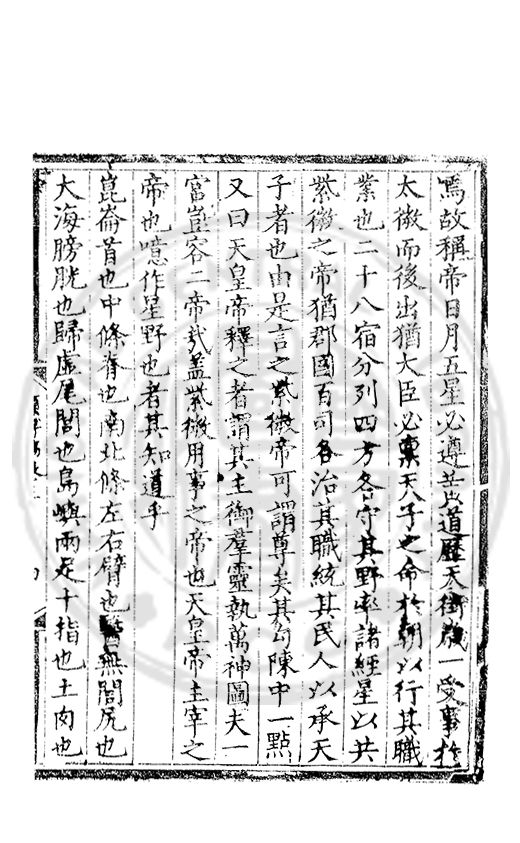 焉故稱帝日月五星必遵黄道歷天街歲一受事於
太微而後出猶大臣必稟天子之命於朝以行其職
業也二十八宿分列四方各守其野率諸經星以共
紫微之帝猶郡國百司各治其職統其民人以承天
子者也由是言之紫微帝可謂尊矣其勾陳中一點
又曰天皇帝釋之者謂其主御羣靈執萬神圖夫一
宮豈容二帝哉蓋紫微用事之帝也天皇帝主宰之
帝也噫作星野也者其知道乎
崑崙首也中條脊也南北條左右臂也醫無閭尻也
大海膀胱也歸虛尾閭也島嶼兩足十指也土肉也